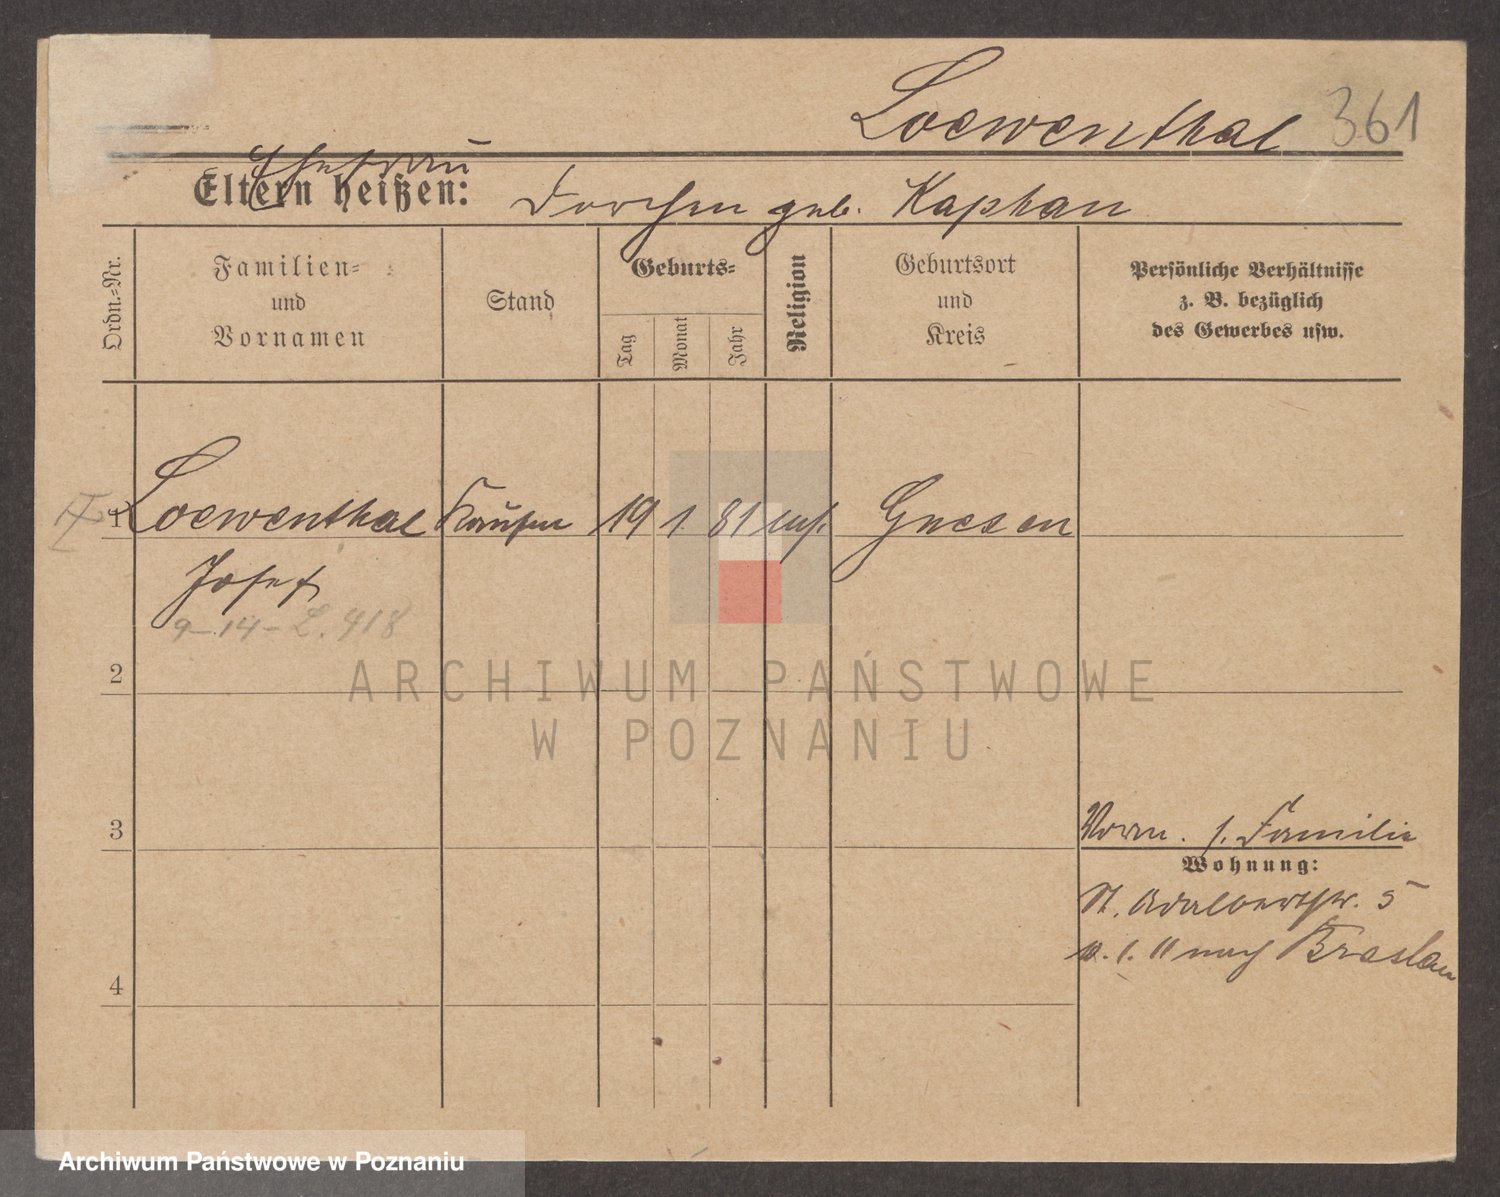 Loewenthal 361
Ehefrau
Eltern heißen: Dorchen geb. Kaphan
Ordn.=Nr.
Familien=
und
Vornamen
Stand
Geburts=
Tag
Monat
Jahr
Religion
Geburtsort
und
Kreis
Persönliche Verhältnisse
z. B. bezüglich
des Gewerbes usw.
1 Loewenthal Kaufm 19 1. 81 mos. Gnesen
Josef
9-14-L. 418
2
ARCHIWUM PAŃSTWOWE
W POZNANIU
3
Vorm. s. Familie
Wohnung:
St. Adalbertstr. 5
4
nach Breslau
Archiwum Państwowe w Poznaniu